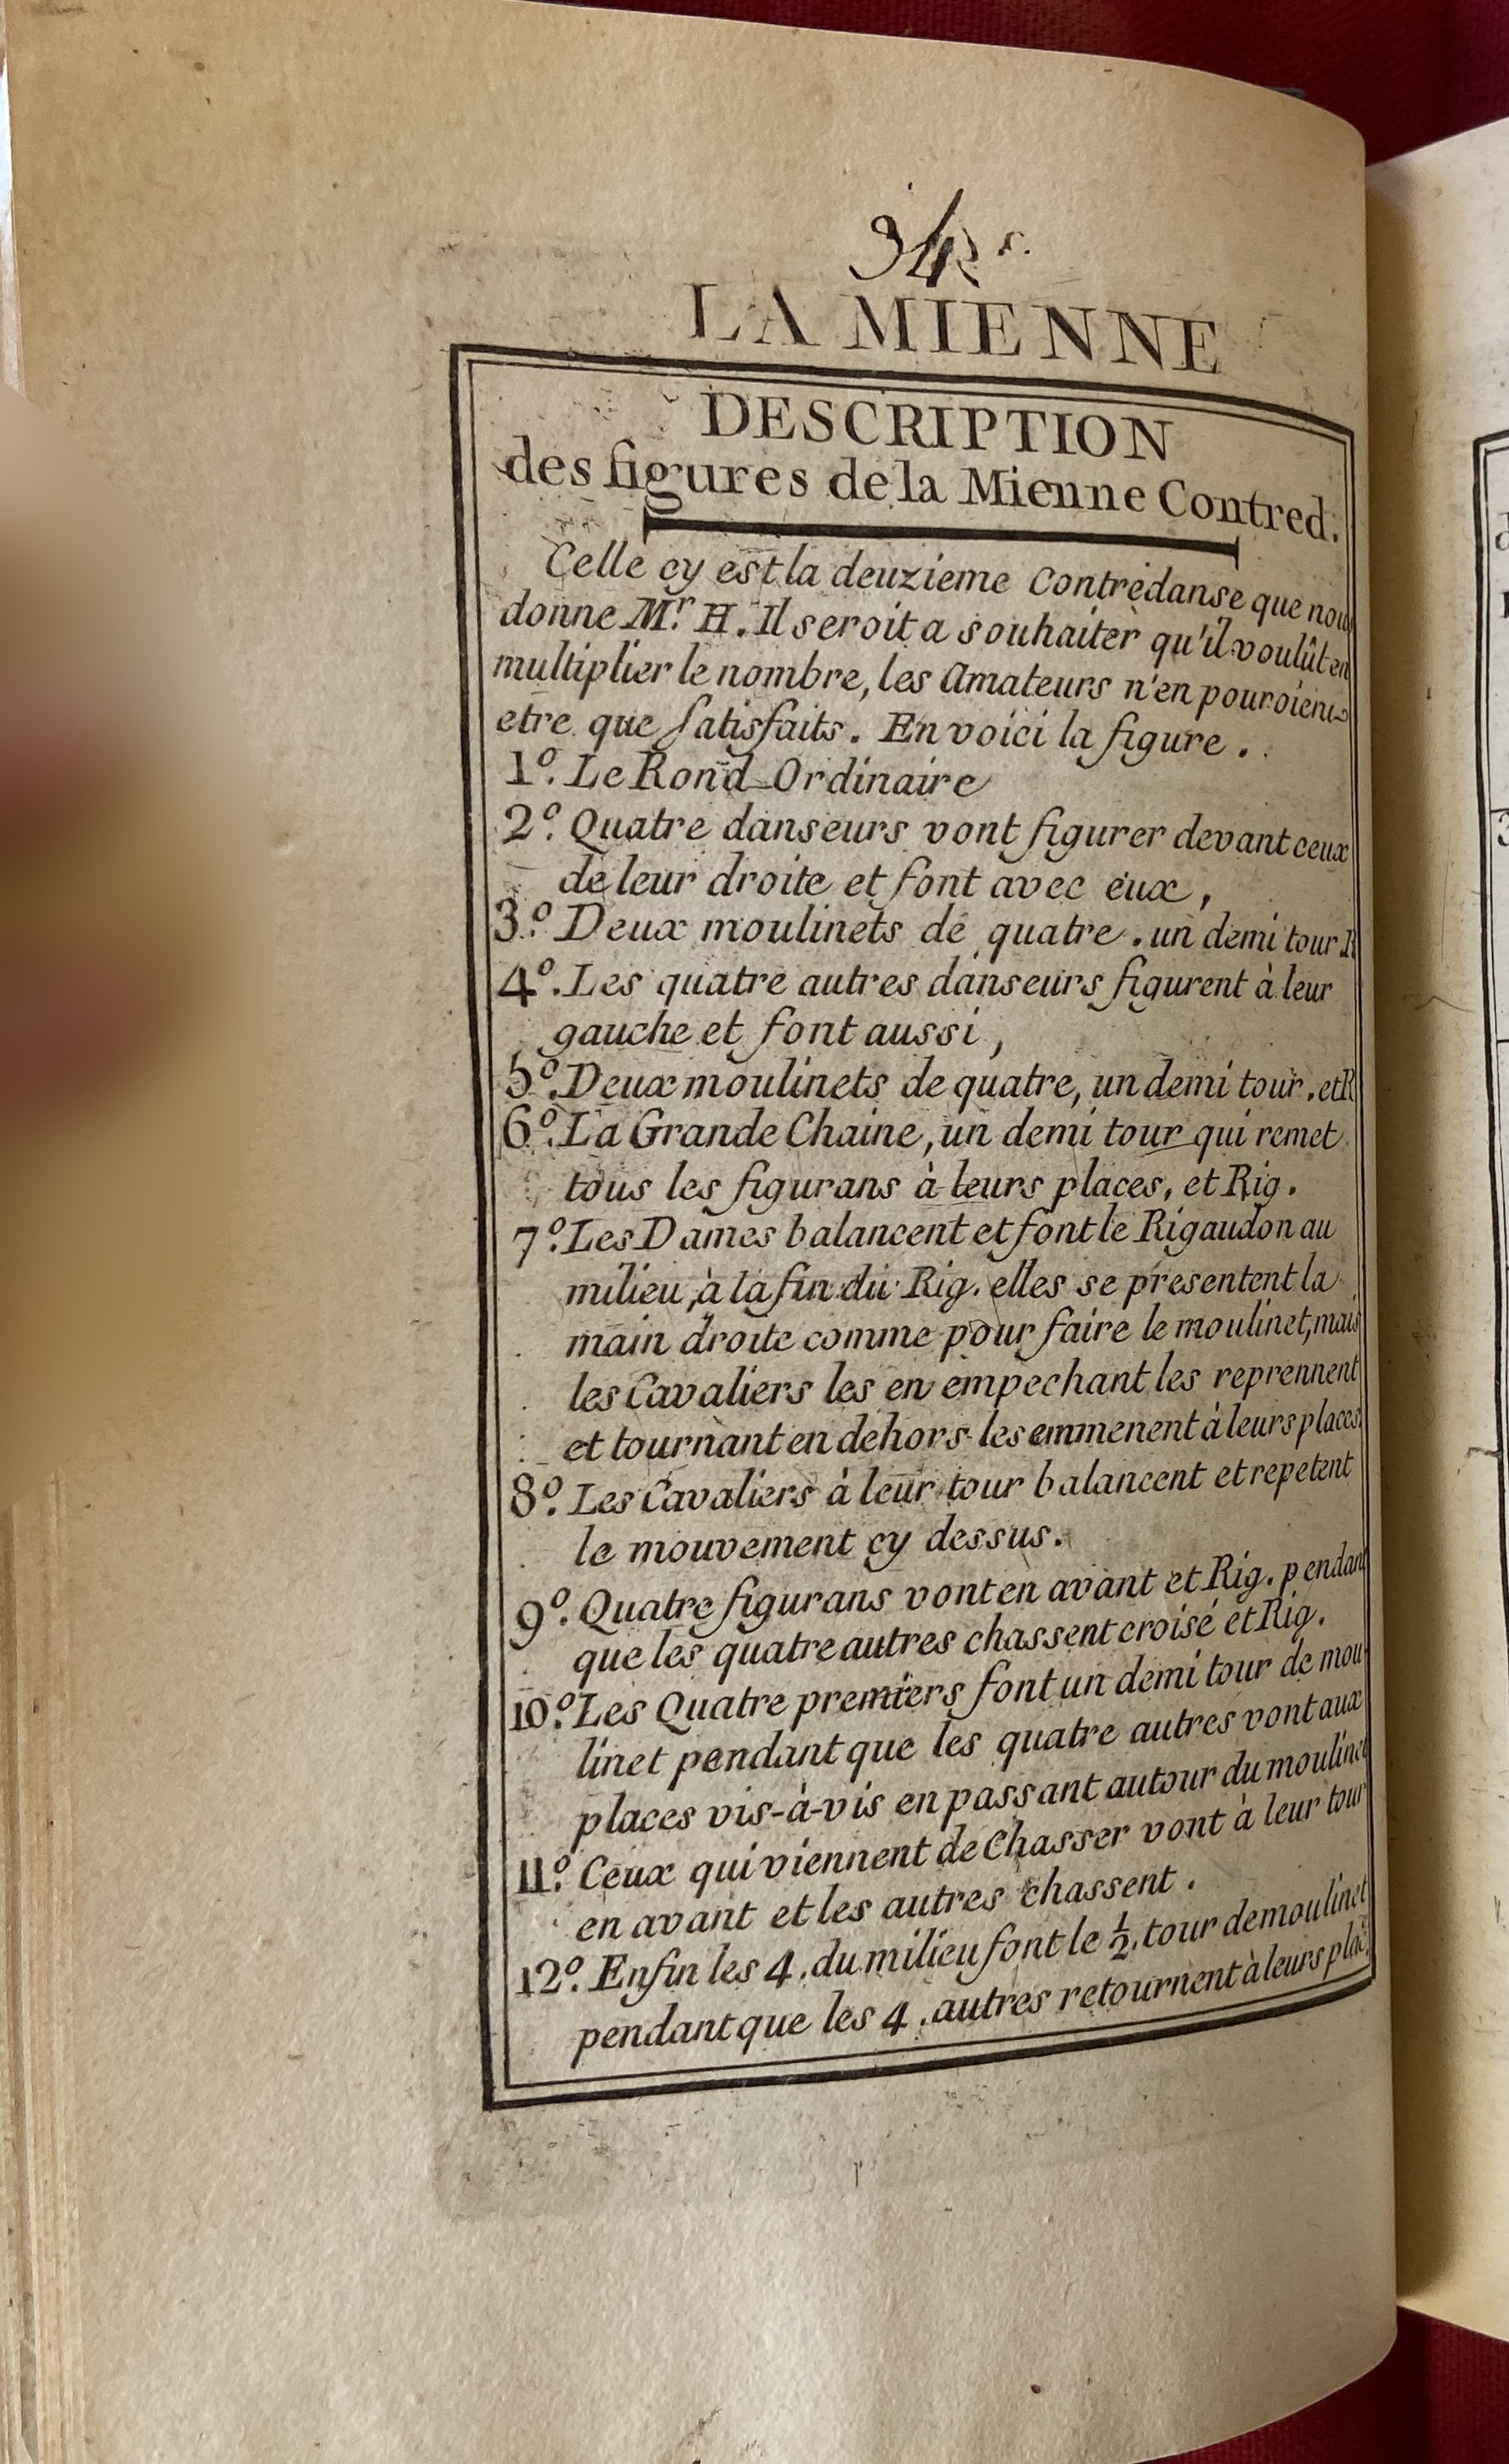 34
LA MIENNE
DESCRIPTION
des figures de la Mienne Contred.
Celle cy est la deuzieme Contredanse que nou
donne Mr. H. Il seroit a souhaiter qu'il voulût en
multiplier le nombre, les Amateurs n'en pouroient
etre que satisfaits. En voici la figure.
1º. Le Rond Ordinaire
2º. Quatre danseurs vont figurer devant ceux
de leur droite et font avec eux,
3º. Deux moulinets de quatre. un demi tour R
4º. Les quatre autres danseurs figurent à leur
gauche et font aussi,
5º. Deux moulinets de quatre, un demi tour. et R
6º. La Grande Chaine, un demi tour qui remet
tous les figurans à leurs places, et Rig.
7º. Les Dames balancent et font le Rigaudon au
milieu, à la fin du Rig. elles se presentent la
main droite comme pour faire le moulinet, mais
les Cavaliers les en empechant les reprennent
et tournant en dehors les emmenent à leurs places
8º. Les Cavaliers à leur tour balancent et repetent
le mouvement cy dessus.
9º. Quatre figurans vont en avant et Rig. pendant
que les quatre autres chassent croisé et Rig.
10º. Les Quatre premiers font un demi tour de mou
linet pendant que les quatre autres vont aux
places vis-à-vis en passant autour du moulinet
11º. Ceux qui viennent de Chasser vont à leur tour
en avant et les autres chassent.
12º. Enfin les 4. du milieu font le ½. tour de moulinet
pendant que les 4. autres retournent à leurs plac.